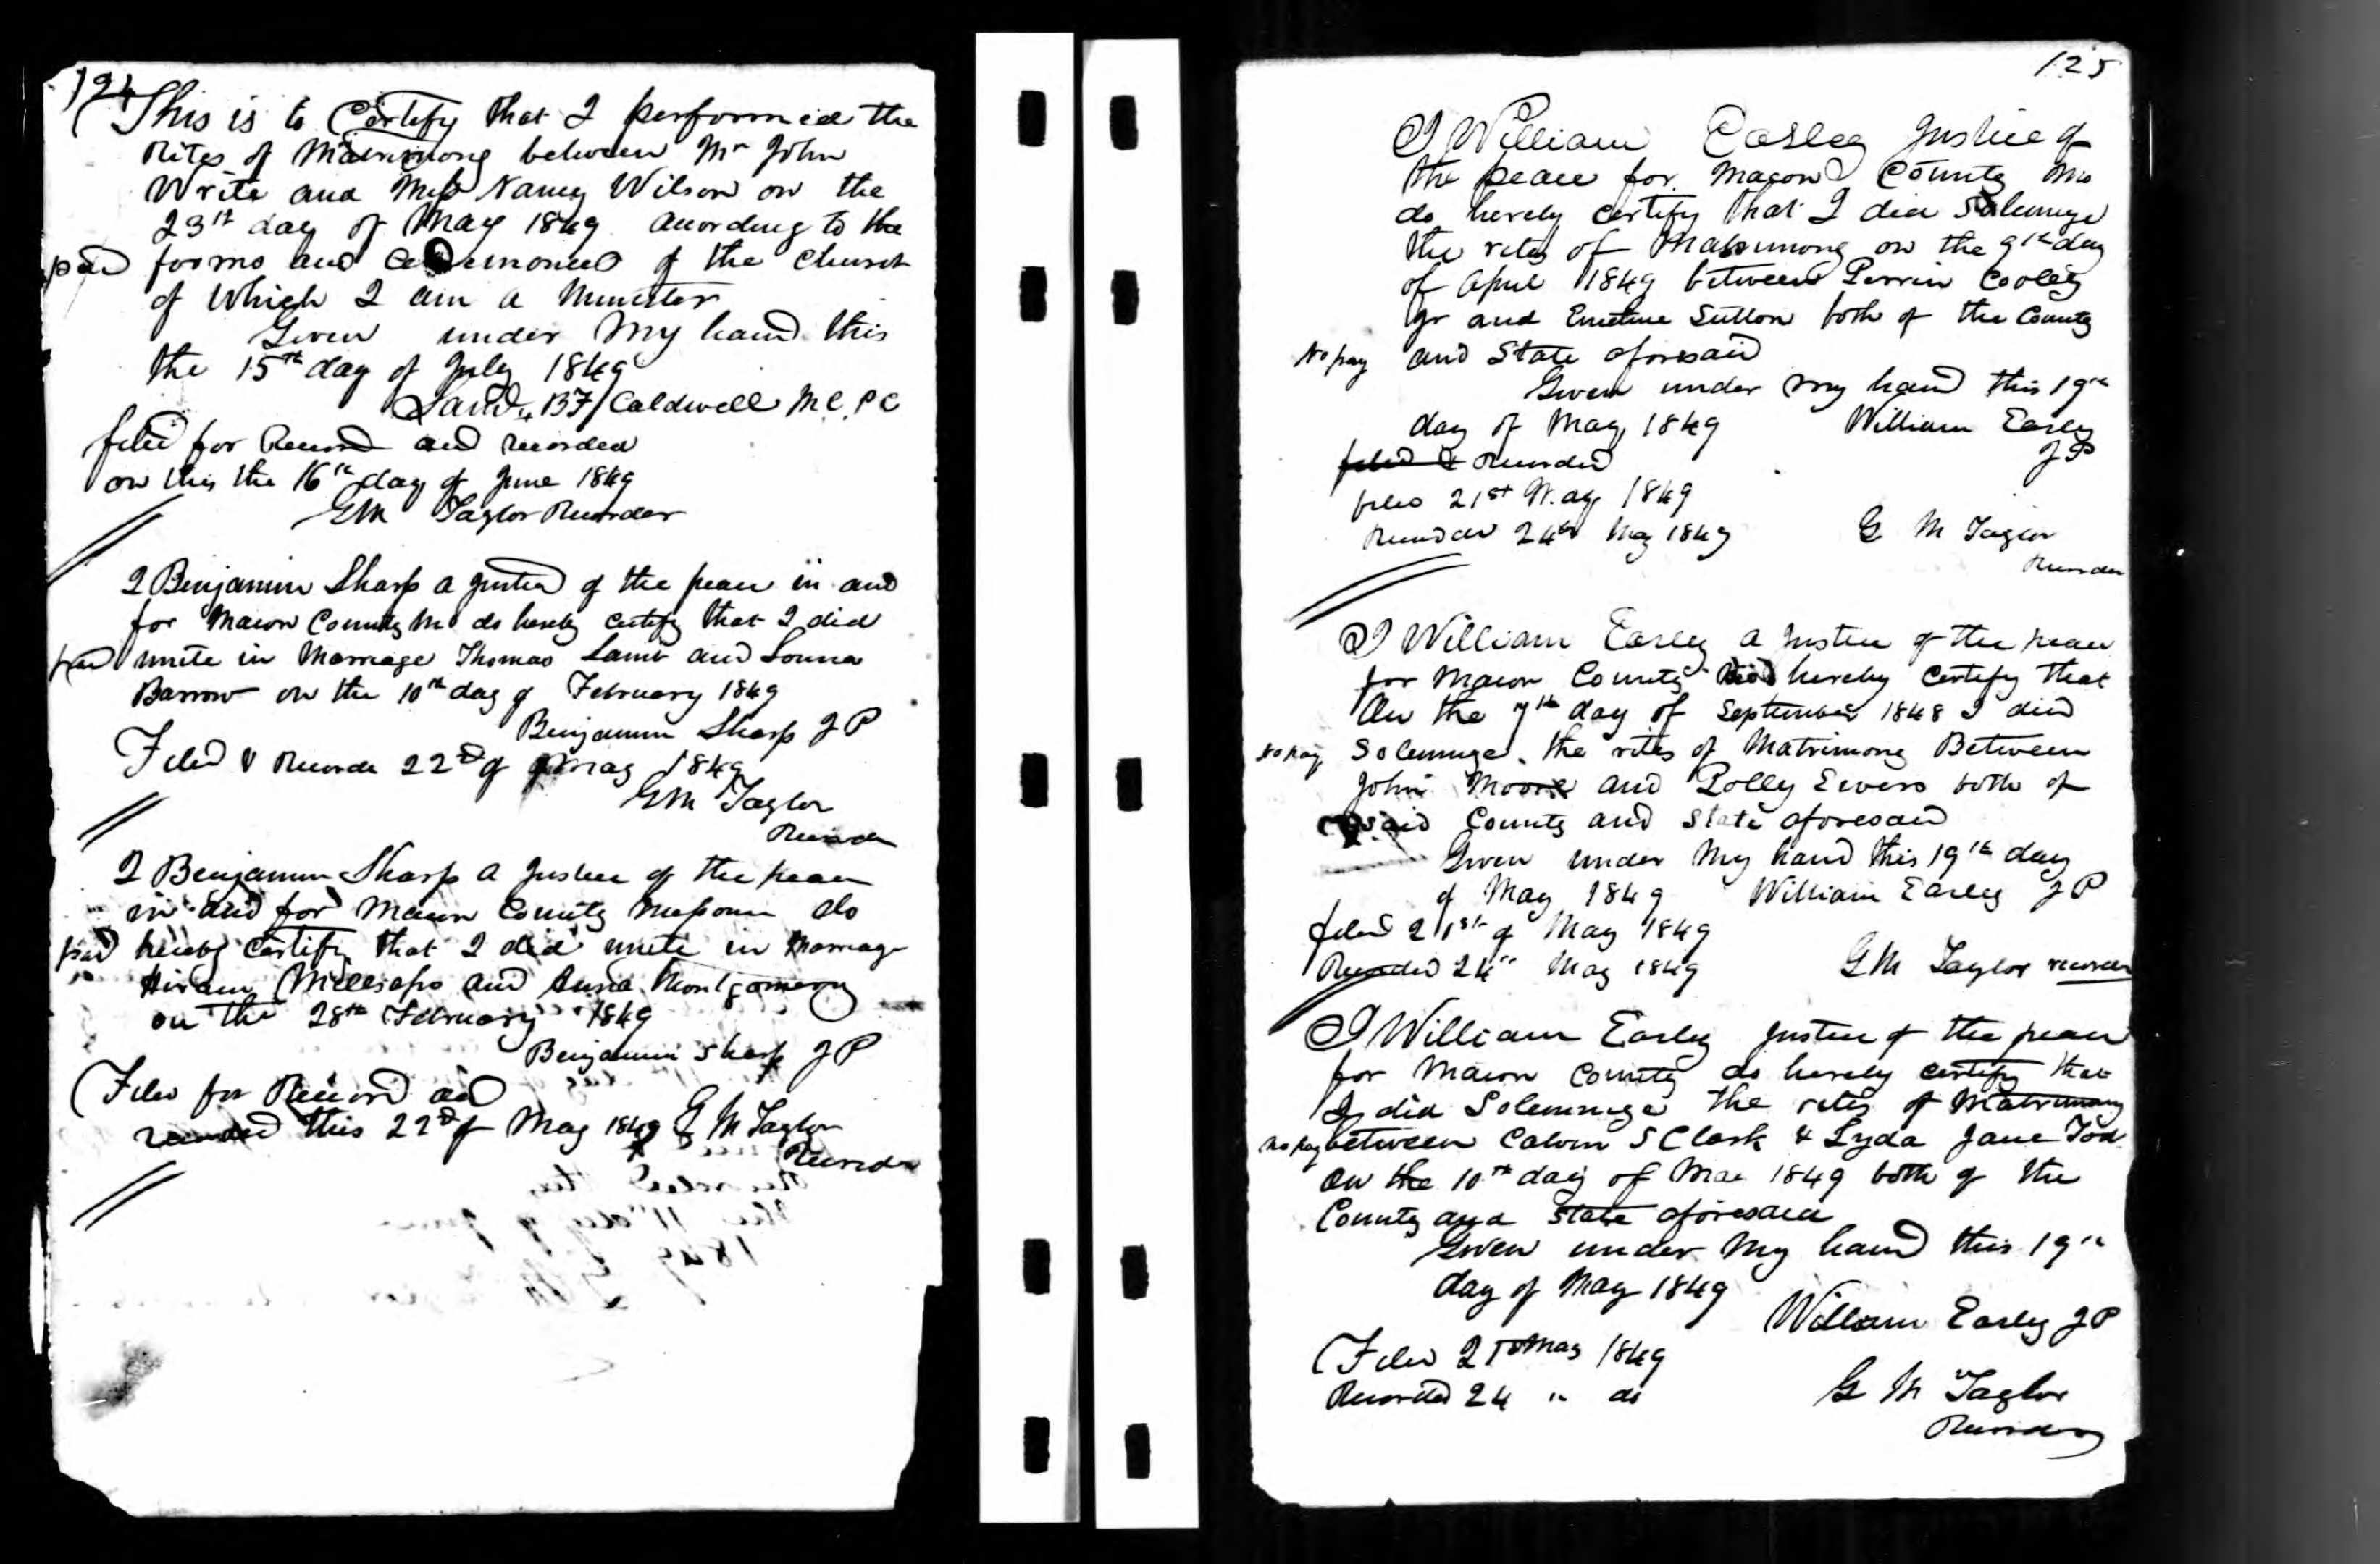 124
This is to Certify that I performed the
rites of Matrimony between Mr John
Write and Miss Nancy Wilson on the
23th day of May 1849 according to the
paid forms and Ceremonies of the Church
of Which I am a Minister
Given under My hand this
the 15th day of July 1849
B F Caldwell M C P C
filed for Record and recorded
on this the 16th day of June 1849
G M Taylor Recorder
I Benjamin Sharp a Justice of the peace in and
for Macon County Mo do hereby certify that I did
paid unite in Marriage Thomas Lamb and
Barrow on the 10th day of February 1849
Benjamin Sharp J P
Filed & Recorde 22nd of May 1849
G M Taylor
Recorder
I Benjamin Sharp a Justice of the peace
in and for Macon County Missouri do
paid hereby certify that I did unite in Marriage
Hiram Millsaps and Anna Montgomery
on the 28th February 1849
Benjamin Sharp J P
Filed for Record and
recorded this 22nd of May 1849 G M Taylor
Recorder
125
I William Easley Justice of
the peace for Macon County Mo
do hereby certify that I did Solemnize
the rites of Matrimony on the 9th day
of April 1849 between Perrin Cooley
Jr and Emetine Sutton both of the County
No pay and State aforesaid
Given under my hand this 19th
day of May 1849 William Easley
J P
filed & Recorded
filed 21st May 1849
Recorded 24th May 1849 G M Taylor
Recorder
I William Easley a Justice of the peace
for Macon County hereby certify that
On the 7th day of September 1848 I did
No pay Solemnize the rites of Matrimony Between
John Moore and Polly Ewers both of
said County and State aforesaid
Given under My hand this 19th day
of May 1849 William Easley J P
filed 21st of May 1849
Recorded 24th May 1849 G M Taylor recorder
I William Easley Justice of the peace
for Macon County do hereby certify that
I did Solemnize the rites of Matrimony
No pay between Calvin S Clark & Lyda Jane Tod
On the 10th day of Mar 1849 both of the
County and State aforesaid
Given under My hand this 19th
day of May 1849
William Easley J P
Filed 21 May 1849
Recorded 24 " do G M Taylor
Recorder